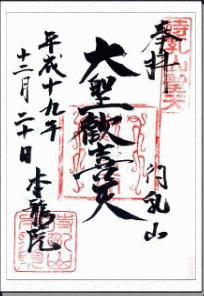 奉拝
待乳山聖天
待乳山
大聖歓喜天
平成十九年
十二月二十日
本龍院